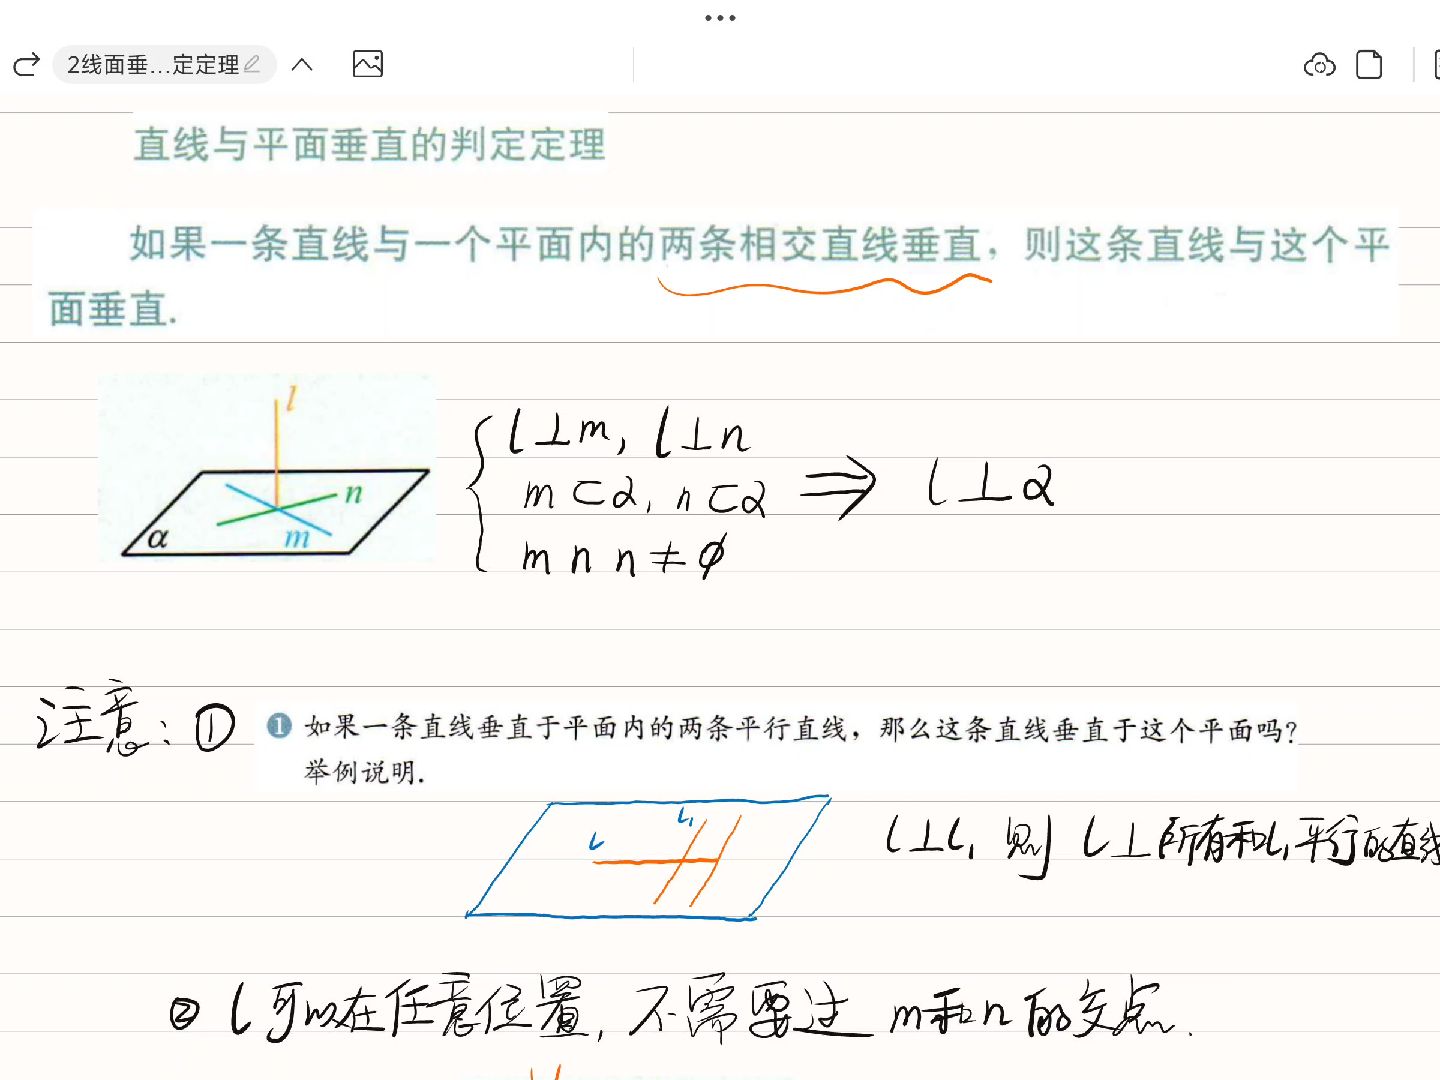 2线面垂...定定理
直线与平面垂直的判定定理
如果一条直线与一个平面内的两条相交直线垂直，则这条直线与这个平
面垂直.
l
n
α
m
l⊥m, l⊥n
m⊂α, n⊂α ⇒ l⊥α
m∩n≠∅
注意：① ❶ 如果一条直线垂直于平面内的两条平行直线，那么这条直线垂直于这个平面吗？
举例说明.
l l₁
l⊥l₁ 则 l⊥所有和l₁平行的直线
② l可以在任意位置, 不需要过 m和n的交点.